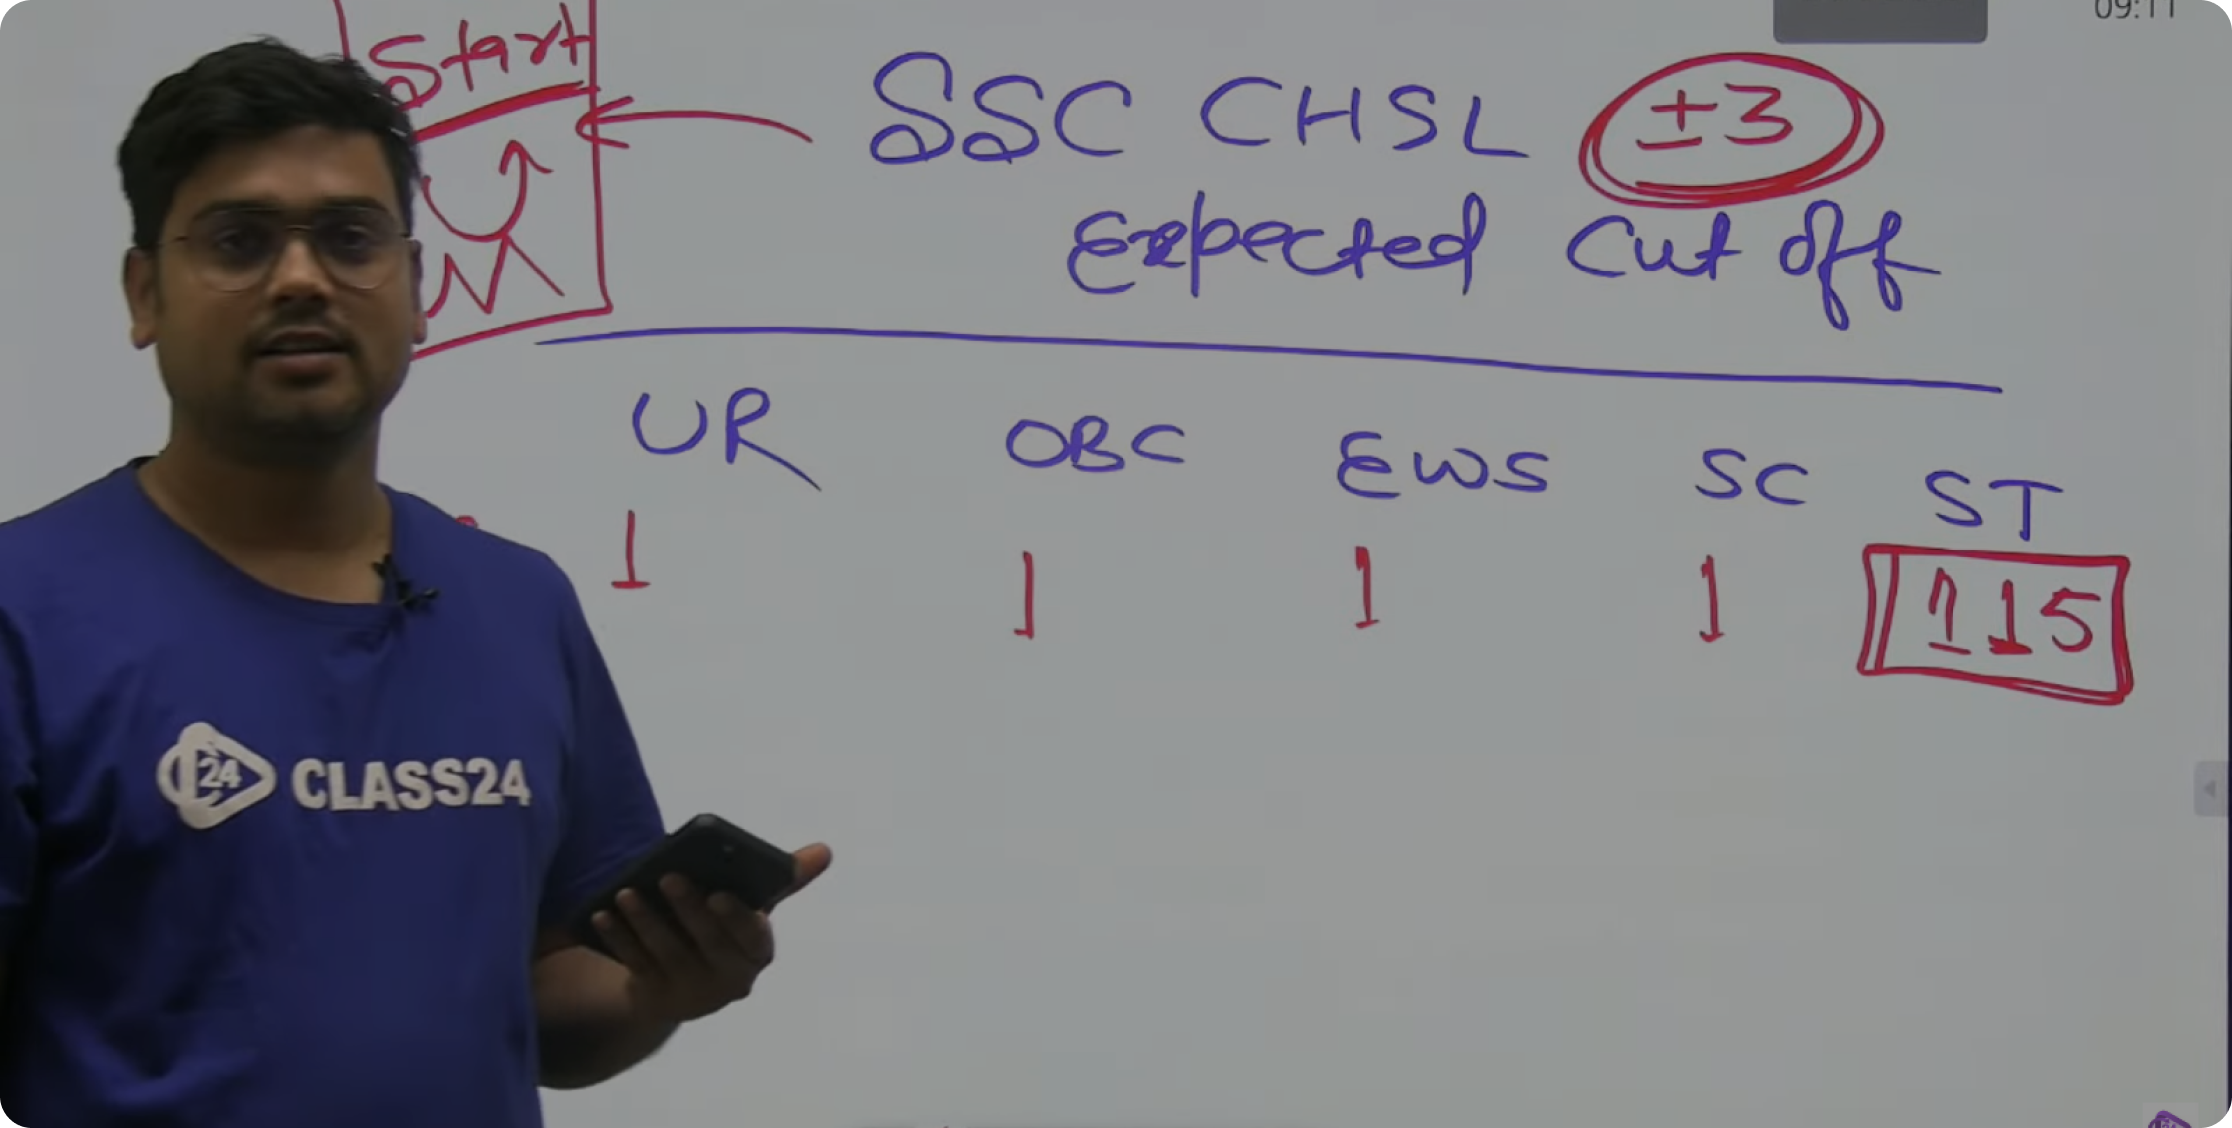 09:11
Start
SSC CHSL ±3
Expected Cut off
UR OBC EWS SC ST
1 1 1 1 115
24 CLASS24